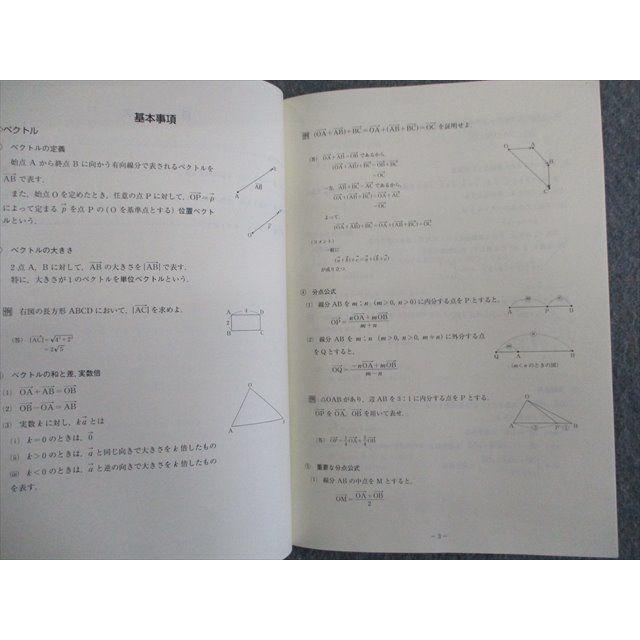 基本事項
ベクトル
ベクトルの定義
始点 A から終点 B に向かう有向線分で表されるベクトルを
AB で表す.
また, 始点 O を定めたとき, 任意の点 P に対して, OP=p
によって定まる p を点 P の (O を基準点とする) 位置ベクト
ルという.
A
AB
B
O
p
P
ベクトルの大きさ
2 点 A, B に対して, AB の大きさを |AB| で表す.
特に, 大きさが 1 のベクトルを単位ベクトルという.
例 右図の長方形 ABCD において, |AC| を求めよ.
(答) |AC|=√4²+2²
=2√5
A 4 D
2
B C
ベクトルの和と差, 実数倍
(1) OA+AB=OB
(2) OB-OA=AB
(3) 実数 k に対し, ka とは
(i) k=0 のときは, 0
(ii) k>0 のときは, a と同じ向きで大きさを k 倍したもの
(iii) k<0 のときは, a と逆の向きで大きさを k 倍したもの
を表す.
O
A
例 (OA+AB)+BC=OA+(AB+BC)=OC を証明せよ.
(答) OA+AB=OB であるから,
(OA+AB)+BC=OB+BC
=OC
一方, AB+BC=AC であるから,
OA+(AB+BC)=OA+AC
=OC
よって,
(OA+AB)+BC=OA+(AB+BC)=OC
(コメント)
一般に
(a+b)+c=a+(b+c)
が成り立つ.
O A
B
C
④ 分点公式
(1) 線分 AB を m:n (m>0, n>0) に内分する点を P とすると,
OP=nOA+mOB
m+n
A P B
(2) 線分 AB を m:n (m>0, n>0, m≠n) に外分する点
を Q とすると,
OQ=-nOA+mOB
m-n
Q A B
(m<n のときの図)
例 △OAB があり, 辺 AB を 3:1 に内分する点を P とする.
OP を OA, OB を用いて表せ.
(答) OP=1/4OA+3/4OB
O
A ③ P ① B
⑤ 重要な分点公式
(1) 線分 AB の中点を M とすると,
OM=OA+OB
2
- 3 -